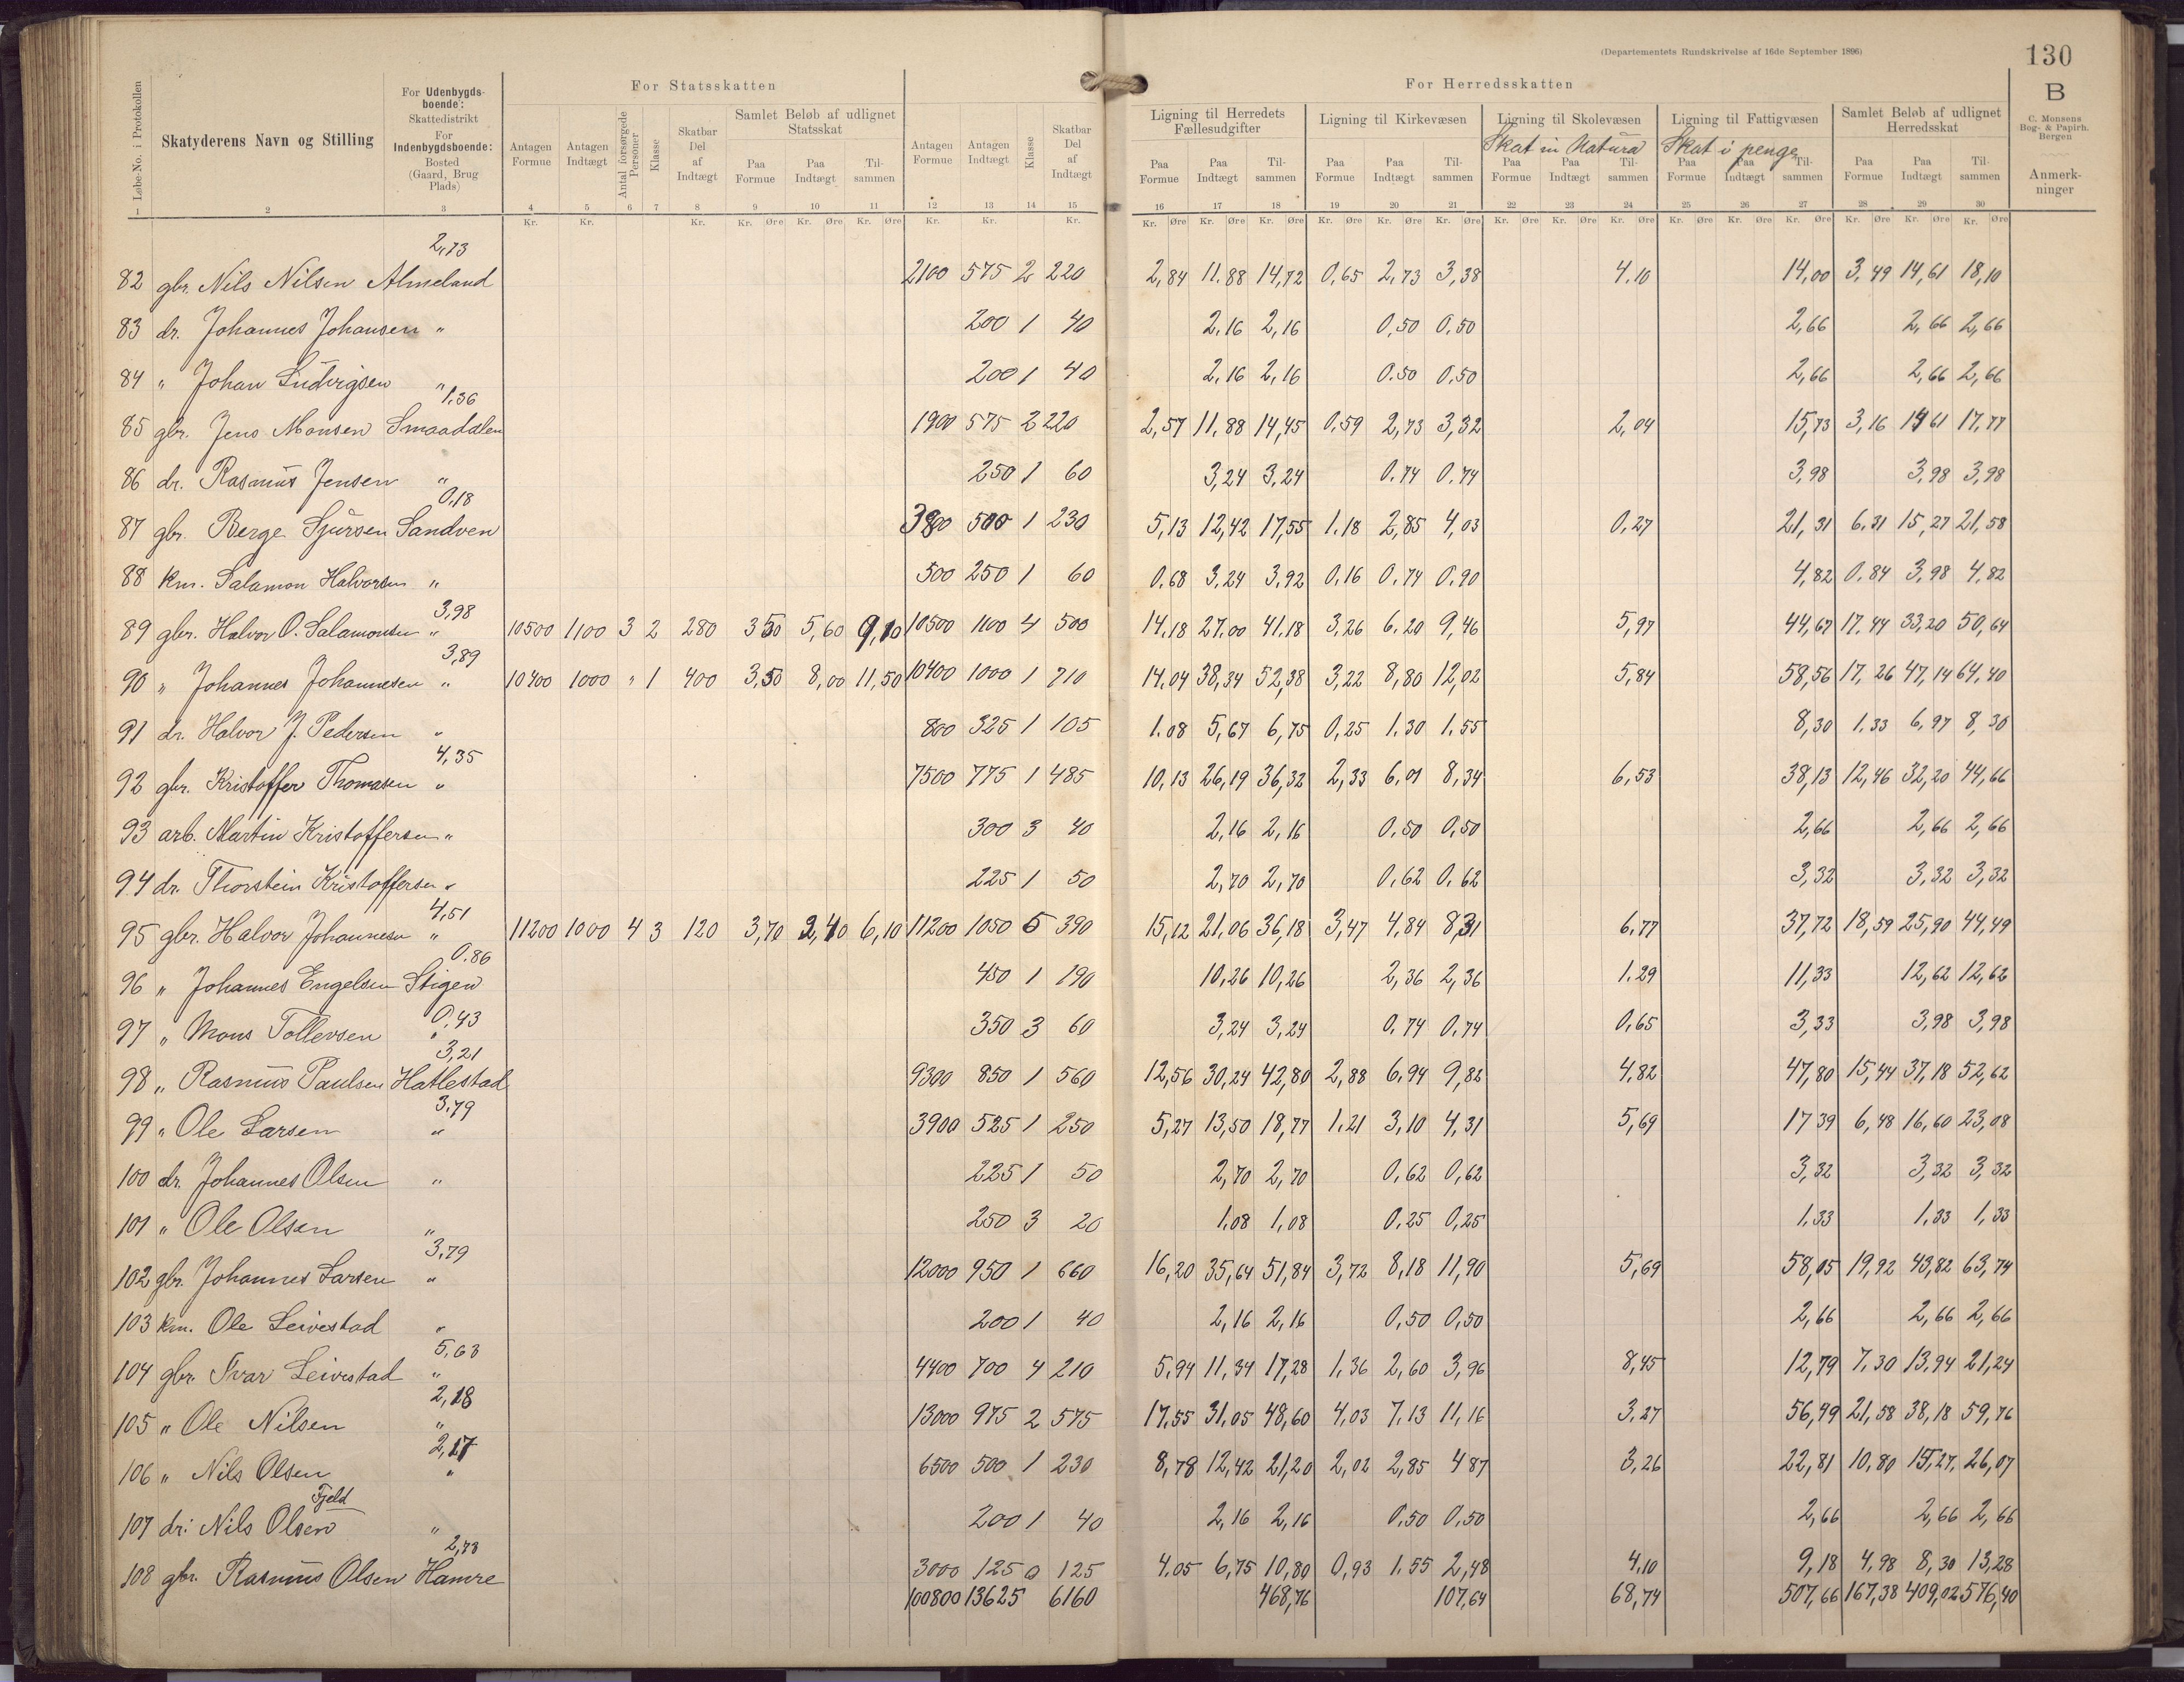 (Departementets Rundskrivelse af 16de September 1896)
130
For Statsskatten
For Herredsskatten
B
C. Monsens Bog- & Papirh. Bergen
Anmerkninger
Løbe-No. i Protokollen
Skatyderens Navn og Stilling
For Udenbygdsboende: Skattedistrikt
For Indenbygdsboende: Bosted (Gaard, Brug Plads)
Antagen Formue
Antagen Indtægt
Antal forsørgede Personer
Klasse
Skatbar Del af Indtægt
Samlet Beløb af udlignet Statsskat
Paa Formue Paa Indtægt Tilsammen
Antagen Formue
Antagen Indtægt
Klasse
Skatbar Del af Indtægt
Ligning til Herredets Fællesudgifter
Paa Formue Paa Indtægt Tilsammen
Ligning til Kirkevæsen
Paa Formue Paa Indtægt Tilsammen
Ligning til Skolevæsen
Skat in Natura
Paa Formue Paa Indtægt Tilsammen
Ligning til Fattigvæsen
Skat i penge
Paa Formue Paa Indtægt Tilsammen
Samlet Beløb af udlignet Herredsskat
Paa Formue Paa Indtægt Tilsammen
1 2 3 4 5 6 7 8 9 10 11 12 13 14 15 16 17 18 19 20 21 22 23 24 25 26 27 28 29 30
Kr. Kr. Kr. Kr. Øre Kr. Øre Kr. Øre Kr. Kr. Kr. Kr. Øre Kr. Øre Kr. Øre Kr. Øre Kr. Øre Kr. Øre Kr. Øre Kr. Øre Kr. Øre Kr. Øre Kr. Øre Kr. Øre Kr. Øre Kr. Øre Kr. Øre
2,73
82 gbr. Nils Nilsen Almeland 2100 575 2 220 2,84 11.88 14,72 0,65 2,73 3,38 4.10 14,00 3,49 14,61 18,10
83 dr. Johannes Johansen " 200 1 40 2,16 2,16 0,50 0.50 2,66 2,66 2,66
84 " Johan Ludvigsen " 200 1 40 2,16 2,16 0.50 0,50 2,66 2,66 2,66
1,36
85 gbr. Jens Monsen Smaadalen 1900 575 2 220 2,57 11,88 14,45 0,59 2,73 3,32 2,04 15,73 3,16 14 61 17,77
86 dr. Rasmus Jensen " 250 1 60 3,24 3,24 0.74 0.74 3,98 3,98 3,98
0,18
87 gbr. Berge Sjursen Sandven 3800 500 1 230 5,13 12,42 17,55 1.18 2,85 4,03 0,27 21,31 6,31 15,27 21,58
88 Km. Salamon Halvorsen " 500 250 1 60 0.68 3,24 3,92 0,16 0,74 0,90 4,82 0,84 3,98 4,82
3,98
89 gbr. Halvor O. Salamonsen " 10500 1100 3 2 280 3 50 5,60 9,10 10500 1100 4 500 14,18 27,00 41,18 3,26 6,20 9,46 5,97 44,67 17,44 33,20 50,64
3,89
90 " Johannes Johannesen " 10400 1000 " 1 400 3,50 8,00 11,50 10400 1000 1 710 14,04 38,34 52,38 3,22 8,80 12,02 5,84 58,56 17,26 47,14 64,40
91 dr. Halvor J. Pedersen " 800 325 1 105 1.08 5,67 6,75 0,25 1.30 1.55 8,30 1.33 6,97 8,30
4,35
92 gbr. Kristoffer Thomasen " 7500 775 1 485 10,13 26,19 36,32 2,33 6,01 8,34 6,53 38,13 12,46 32,20 44,66
93 arb. Martin Kristoffersen " 300 3 40 2,16 2,16 0,50 0,50 2,66 2,66 2,66
94 dr. Thorstein Kristoffersen " 225 1 50 2,70 2,70 0,62 0,62 3,32 3,32 3,32
4,51
95 gbr. Halvor Johannesen " 11200 1000 4 3 120 3,70 2,40 6,10 11200 1050 5 390 15,12 21,06 36,18 3,47 4,84 8,31 6,77 37,72 18,59 25,90 44,49
0.86
96 " Johannes Engelsen Stigen 450 1 190 10,26 10,26 2,36 2,36 1.29 11,33 12,62 12,62
0,43
97 " Mons Tollevsen " 350 3 60 3,24 3,24 0,74 0,74 0,65 3,33 3,98 3,98
3,21
98 " Rasmus Paulsen Hatlestad 9300 850 1 560 12,56 30,24 42,80 2,88 6,94 9,82 4,82 47,80 15,44 37,18 52,62
3,79
99 " Ole Larsen " 3900 525 1 250 5,27 13,50 18,77 1.21 3,10 4,31 5,69 17 39 6,48 16,60 23,08
100 dr. Johannes Olsen " 225 1 50 2,70 2,70 0,62 0,62 3,32 3,32 3,32
101 " Ole Olsen " 250 3 20 1,08 1,08 0,25 0,25 1,33 1,33 1,33
3,79
102 gbr. Johannes Larsen " 12000 950 1 660 16,20 35,64 51,84 3,72 8,18 11,90 5,69 58,05 19,92 43,82 63,74
103 Km. Ole Leivestad " 200 1 40 2,16 2,16 0,50 0,50 2,66 2,66 2,66
5,63
104 gbr. Ivar Leivestad " 4400 700 4 210 5,94 11,34 17,28 1,36 2,60 3,96 8,45 12,79 7,30 13,94 21,24
2,18
105 " Ole Nilsen " 13000 975 2 575 17,55 31,05 48,60 4,03 7,13 11,16 3,27 56,49 21,58 38,18 59,76
2,17
106 " Nils Olsen " 6500 500 1 230 8,78 12,42 21,20 2,02 2,85 4 87 3,26 22,81 10,80 15,27 26,07
Fjeld
107 dr. Nils Olsen " 200 1 40 2,16 2,16 0,50 0,50 2,66 2,66 2,66
2,73
108 gbr. Rasmus Olsen Hamre 3000 125 0 125 4,05 6,75 10,80 0,93 1.55 2,48 4,10 9,18 4,98 8,30 13,28
100800 13625 6160 468,76 107,64 68,74 507,66 167,38 409,02 576,40